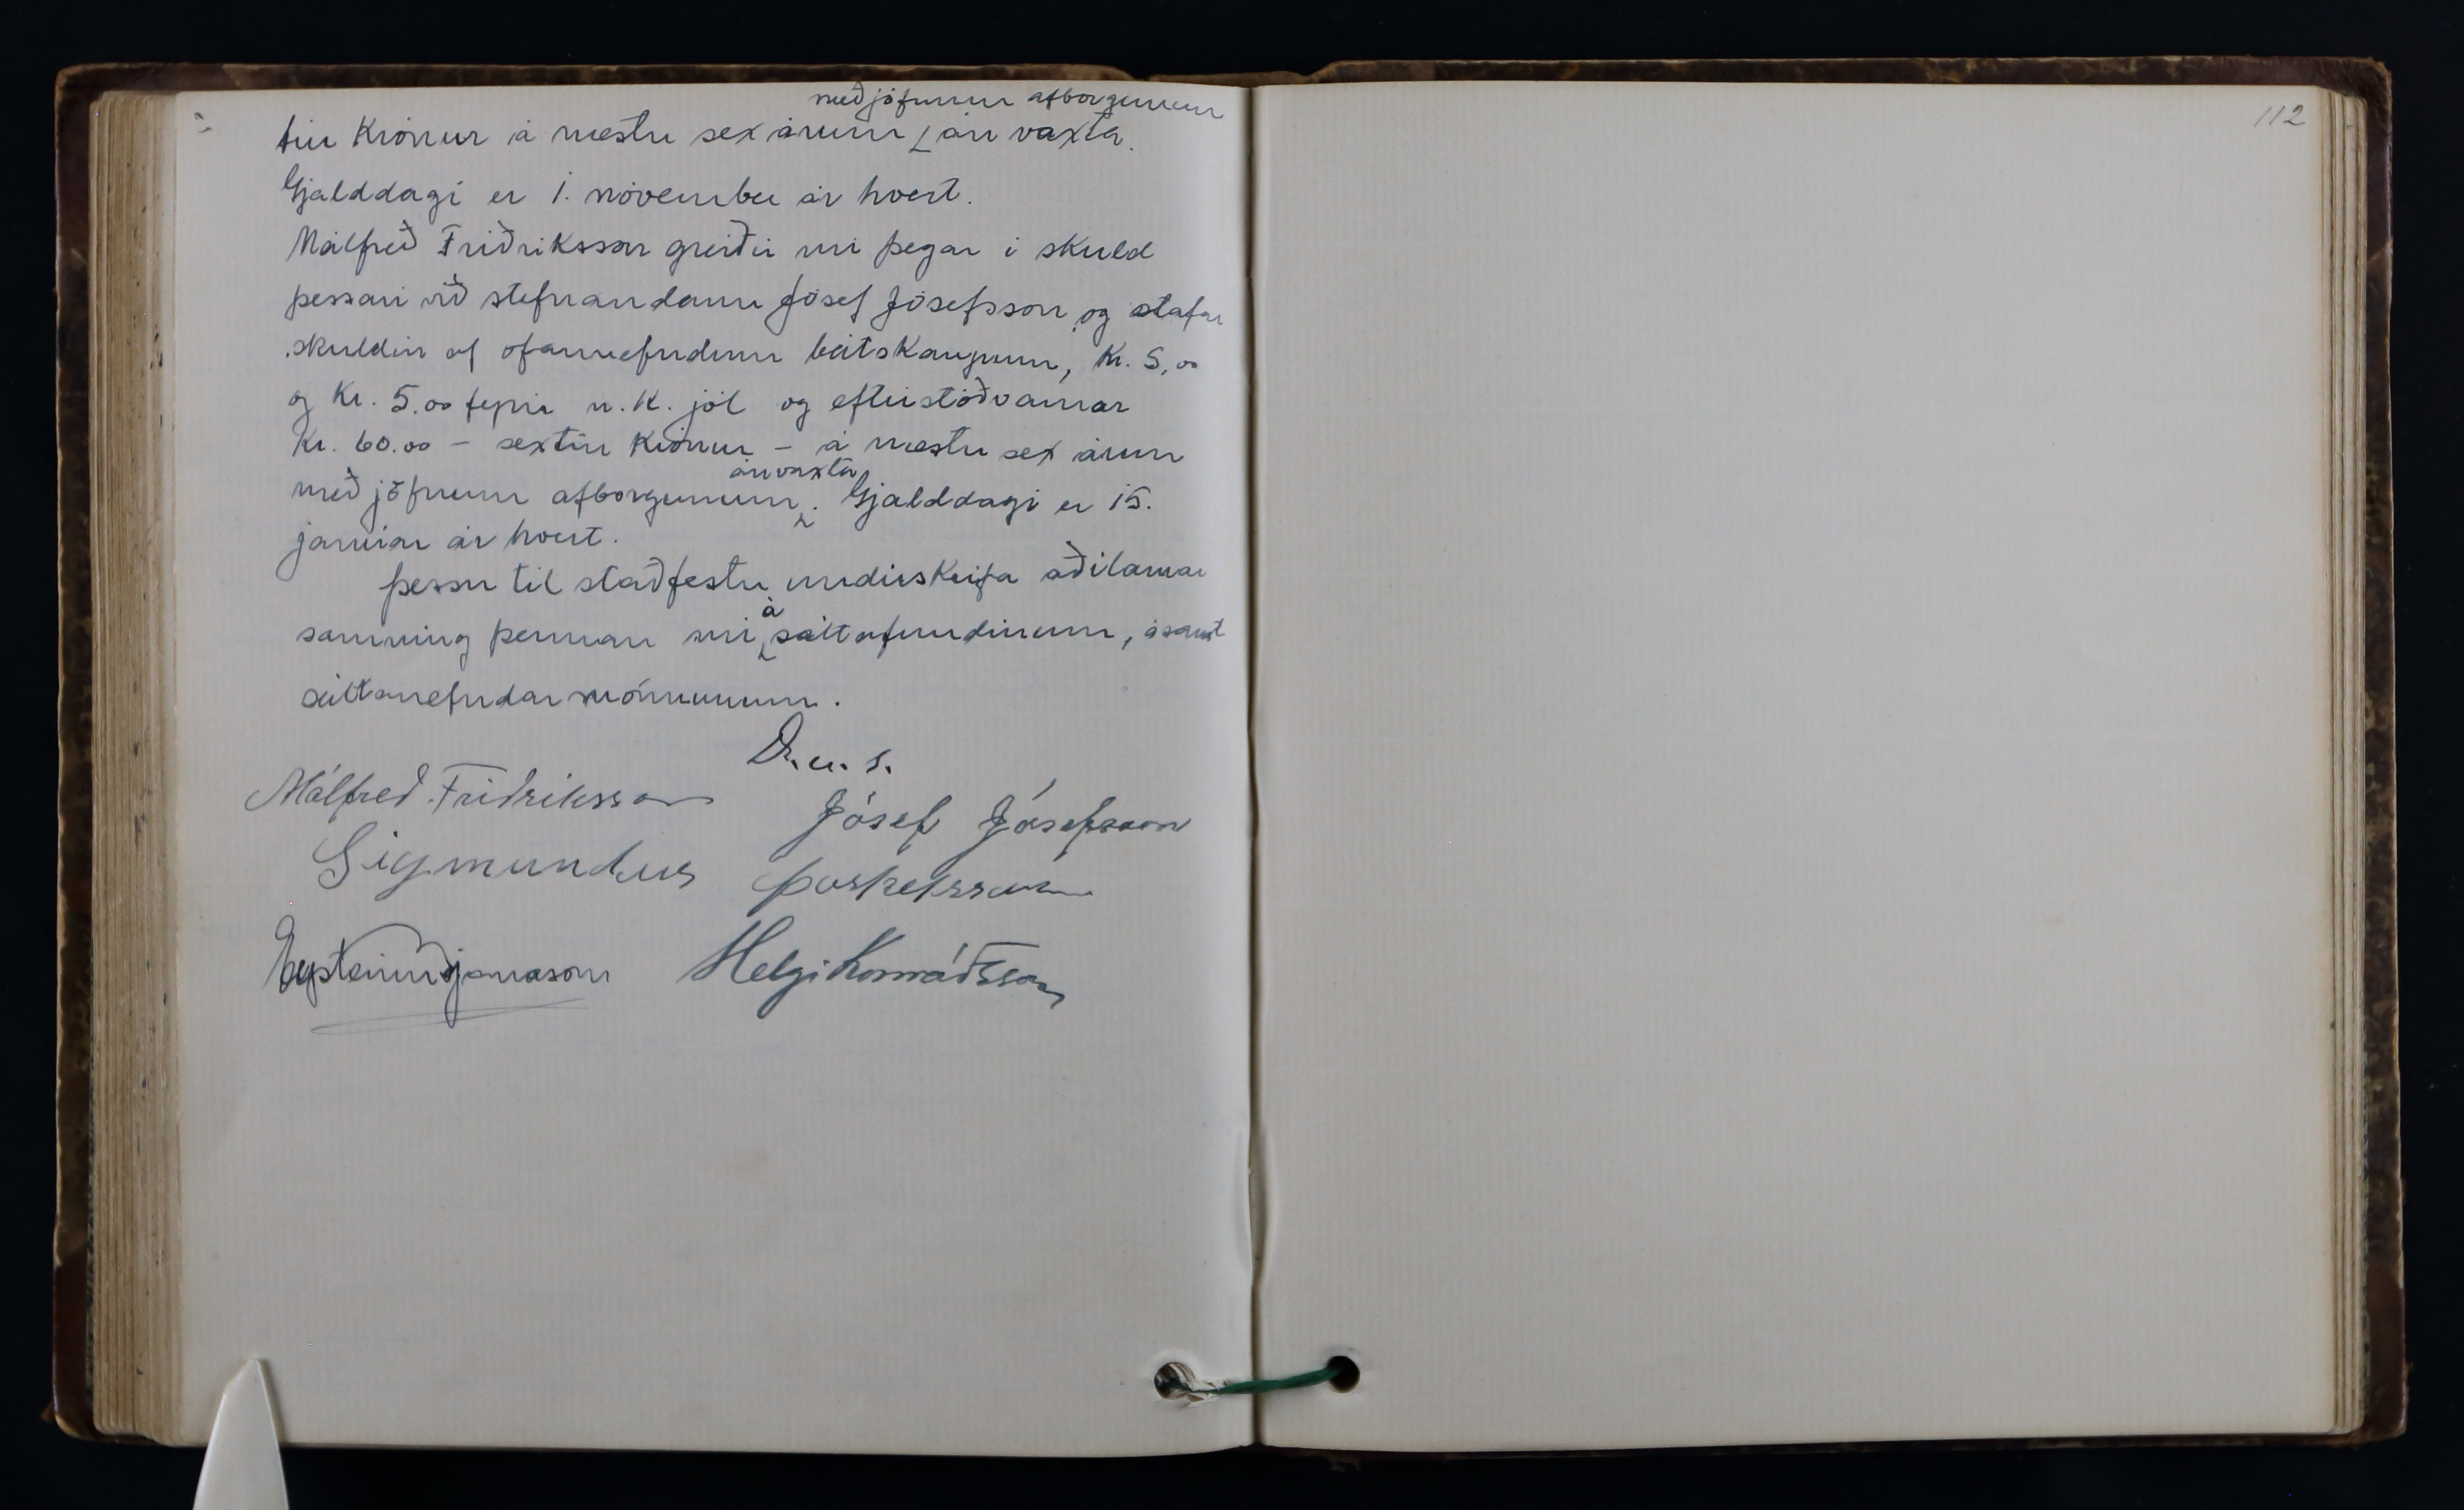 með jöfnum afborgunum
tíu krónur á næstu sex árum án vaxta.
Gjalddagi er 1. nóvember ár hvert.
Málfreð Friðriksson greiðir nú þegar í skuld
þessari við stefnandann Jósef Jósefsson, og stafar
skuldin af ofannefndum bátskaupum, kr. 5,00
og kr. 5.00 fyrir n.k. jól og eftirstöðvarnar
kr. 60.00 - sextíu krónur - á næstu sex árum
án vaxta
með jöfnum afborgunum. Gjalddagi er 15.
janúar ár hvert.
Þessu til staðfestu undirskrifa aðilarnar
á
samning þennan nú sáttafundinum, ásamt
sáttanefndarmönnunum.
D.u.s.
Málfreð Friðriksson
Jósef Jósefsson
Sigmundur Þorkelsson
Eysteinn Bjarnason Helgi Konráðsson
112